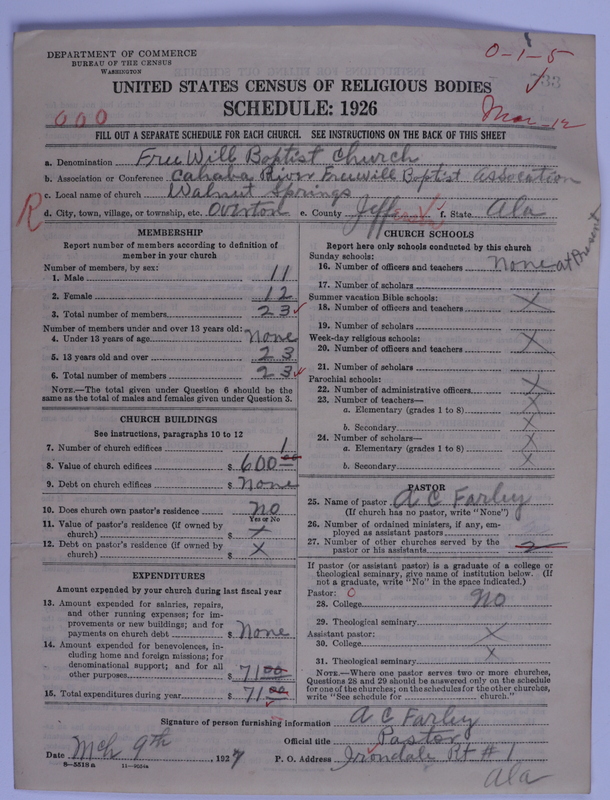 DEPARTMENT OF COMMERCE
BUREAU OF THE CENSUS
WASHINGTON
0-1-5
733
UNITED STATES CENSUS OF RELIGIOUS BODIES
SCHEDULE: 1926
000
Mar 12
FILL OUT A SEPARATE SCHEDULE FOR EACH CHURCH. SEE INSTRUCTIONS ON THE BACK OF THIS SHEET
a. Denomination Free Will Baptist Church
b. Association or Conference Cahaba River Freewill Baptist Assocation
c. Local name of church Walnut Springs
R
d. City, town, village, or township, etc. Overton e. County Jefferson f. State Ala
MEMBERSHIP
Report number of members according to definition of
member in your church
Number of members, by sex:
1. Male 11
2. Female 12
3. Total number of members 23
Number of members under and over 13 years old:
4. Under 13 years of age None
5. 13 years old and over 23
6. Total number of members 23
NOTE.—The total given under Question 6 should be the
same as the total of males and females given under Question 3.
CHURCH BUILDINGS
See instructions, paragraphs 10 to 12
7. Number of church edifices 1
8. Value of church edifices $ 600 00
9. Debt on church edifices $ None
10. Does church own pastor's residence no
Yes or No
11. Value of pastor's residence (if owned by
church) $ X
12. Debt on pastor's residence (if owned by
church) $ X
EXPENDITURES
Amount expended by your church during last fiscal year
13. Amount expended for salaries, repairs,
and other running expenses; for im-
provements or new buildings; and for
payments on church debt $ None
14. Amount expended for benevolences, in-
cluding home and foreign missions; for
denominational support; and for all
other purposes $ 71 00
15. Total expenditures during year $ 71 00
CHURCH SCHOOLS
Report here only schools conducted by this church
Sunday schools:
16. Number of officers and teachers None at Present
17. Number of scholars
Summer vacation Bible schools:
18. Number of officers and teachers X
19. Number of scholars
Week-day religious schools:
20. Number of officers and teachers X
21. Number of scholars
Parochial schools:
22. Number of administrative officers X
23. Number of teachers—
a. Elementary (grades 1 to 8) X
b. Secondary X
24. Number of scholars—
a. Elementary (grades 1 to 8) X
b. Secondary X
PASTOR
25. Name of pastor A C Farley
(If church has no pastor, write "None")
26. Number of ordained ministers, if any, em-
ployed as assistant pastors
27. Number of other churches served by the
pastor or his assistants 2
If pastor (or assistant pastor) is a graduate of a college or
theological seminary, give name of institution below. (If
not a graduate, write "No" in the space indicated.)
Pastor: 0
28. College no
29. Theological seminary
Assistant pastor:
30. College X
31. Theological seminary X
NOTE.—Where one pastor serves two or more churches,
Questions 28 and 29 should be answered only on the schedule
for one of the churches; on the schedules for the other churches,
write "See schedule for church."
Signature of person furnishing information A C Farley
Official title Pastor
Date Mch 9th, 1927 P. O. Address Irondale Rt # 1
Ala
8—5518 a